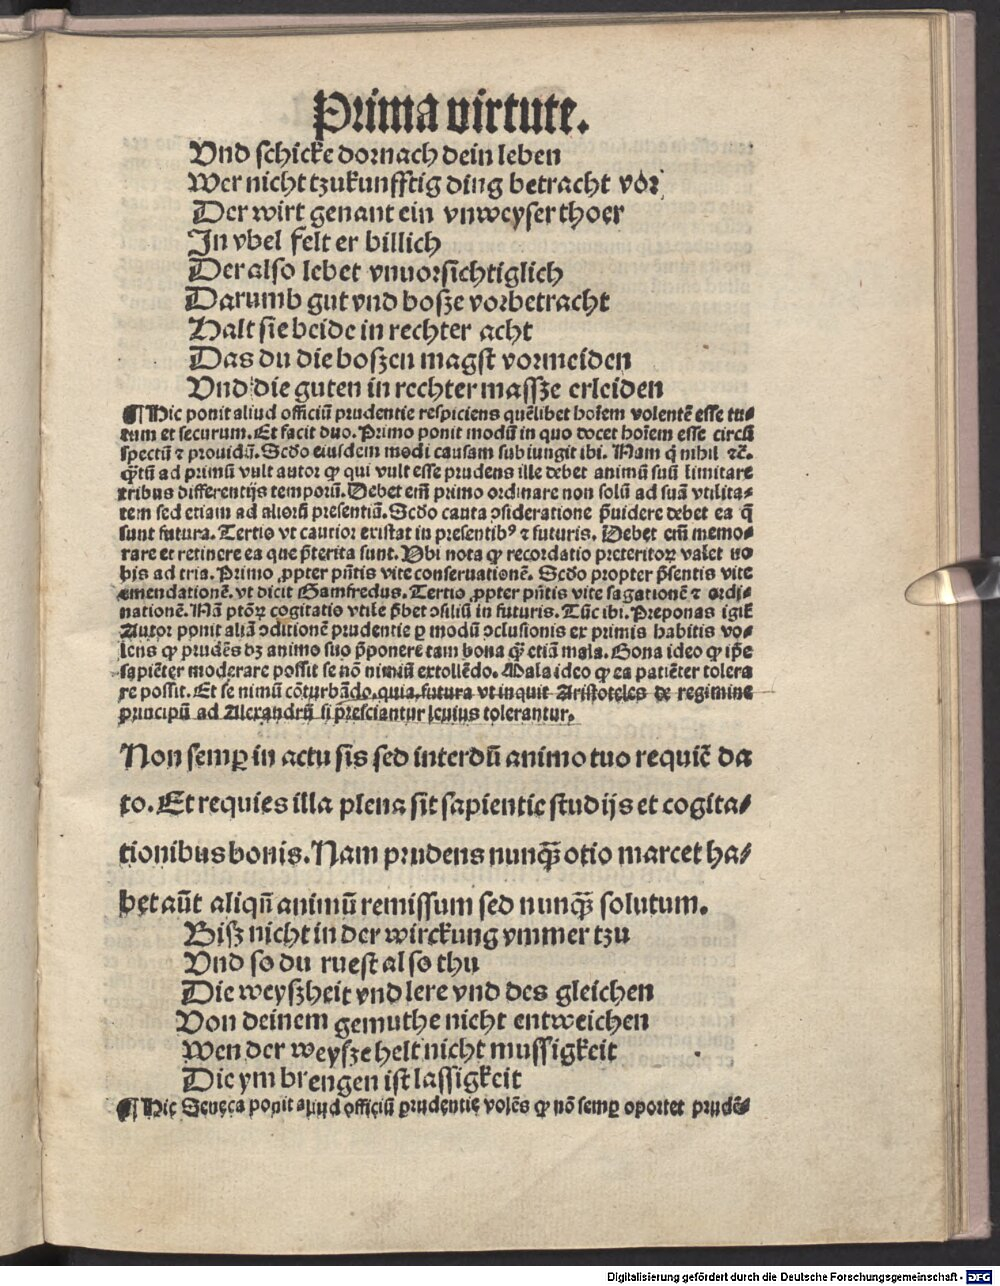 Prima virtute.
Vnd schicke dornach dein leben
Wer nicht tzukunfftig ding betracht vor
Der wirt genant ein vnweyser thoer
In vbel felt er billich
Der also lebet vnuorsichtiglich
Darumb gut vnd bosze vorbetracht
Halt sie beide in rechter acht
Das du die boszen magst vormeiden
Vnd die guten in rechter massze erleiden
¶ Hic ponit aliud officiū prudentie respiciens quēlibet hoīem volentē esse tu⸗
tum et securum. Et facit duo. Primo ponit modū in quo docet hoīem esse circū
spectū ⁊ prouidū. Scdo eiusdem modi causam subiungit ibi. Nam q̄ nihil ⁊c̄.
Q̄tū ad primū vult autor ꝙ qui vult esse prudens ille debet animū suū limitare
tribus differentijs temporū. Debet em̄ primo ordinare non solū ad suā vtilita⸗
tem sed etiam ad aliorū presentiā. Scdo cauta ↄsideratione p̄uidere debet ea q̄
sunt futura. Tertio vt cautior existat in presentibꝰ ⁊ futuris. Debet em̄ memo⸗
rare et retinere ea que p̄terita sunt. Vbi nota ꝙ recordatio preteritoꝝ valet no
bis ad tria. Primo ꝓpter pn̄tis vite conseruationē. Scdo propter p̄sentis vite
emendationē. vt dicit Gamfredus. Tertio ꝓpter pn̄tis vite sagationē ⁊ ordi⸗
nationē. Nā ptōꝝ cogitatio vtile p̄bet ↄsiliū in futuris. Tūc ibi. Preponas igit̄
Autor ponit aliā ↄditionē prudentie ꝑ modū ↄclusionis ex primis habitis vo⸗
lens ꝙ prudēs dꝫ animo suo p̄ponere tam bona q̄ȝ etiā mala. Bona ideo ꝙ ip̄e
sapiēter moderare possit se nō nimiū extollēdo. Mala ideo ꝙ ea patiēter tolera
re possit. Et se nimū cōturbādo. quia futura vt inquit Aristoteles de regimine
principū ad Alexandrū si presciantur leuius tolerantur.
Non semꝑ in actu sis sed interdū animo tuo requiē da
to. Et requies illa plena sit sapientie studijs et cogita⸗
tionibus bonis. Nam prudens nunq̄ȝ otio marcet ha⸗
bet aūt aliqn̄ animū remissum sed nunq̄ȝ solutum.
Bisz nicht in der wirckung ymmer tzu
Vnd so du ruest also thu
Die weyszheit vnd lere vnd des gleichen
Von deinem gemuthe nicht entweichen
Wen der weysze helt nicht mussigkeit
Die ym brengen ist lassigkeit
¶ Hic Seneca ponit aliud officiū prudentie volēs ꝙ nō semꝑ oportet prudē⸗
Digitalisierung gefördert durch die Deutsche Forschungsgemeinschaft - DFG